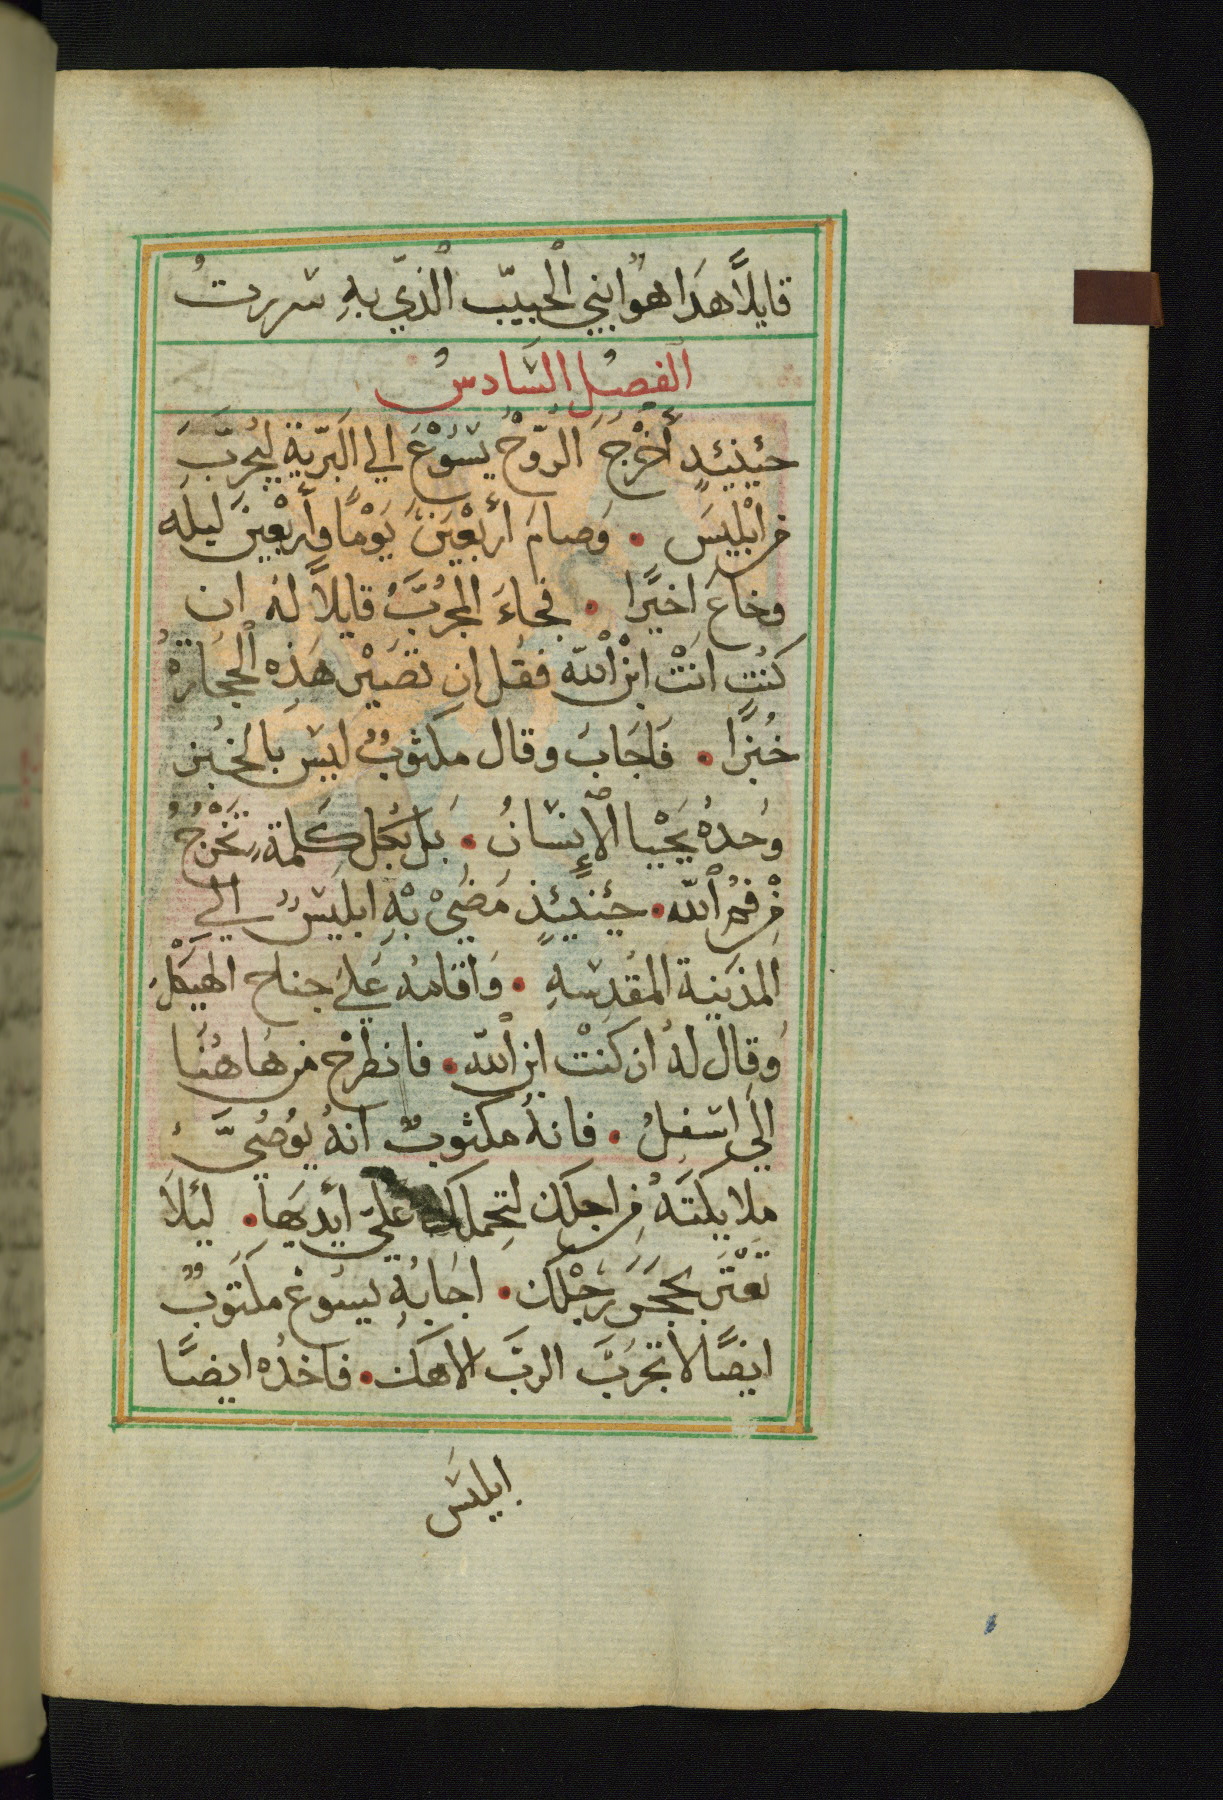 قايلًا هذا هو ابني الحبيب الذي به سررت
الفصل السادس
حينيئدٍ أخرج الروح يسوع الي البرية ليجرب
من ابليس • وصام أربعين يومًا وأربعين ليله
وجاع اخيرًا • فجاء المجرب قايلًا له ان
كنت انت ابن الله فقل ان تصير هذه الحجارة
خبزًا • فاجاب وقال مكتوب ليس بالخبز
وحده يحيا الإنسان • بل بكل كلمة تخرج
من فم الله • حينيئذٍ مضي به ابليس الي
المدينة المقدسه • واقامه علي جناح الهيكل
وقال له ان كنت ابن الله • فانطرح من هاهنا
الي اسفل • فانه مكتوب انه يوصي
ملايكته من اجلك لتحملك علي أيديها • ليئلا
تعثر بحجر رجلك • اجابه يسوع مكتوب
ايضًا لا تجرب الرب الاهك • فاخده ايضًا
ابليس